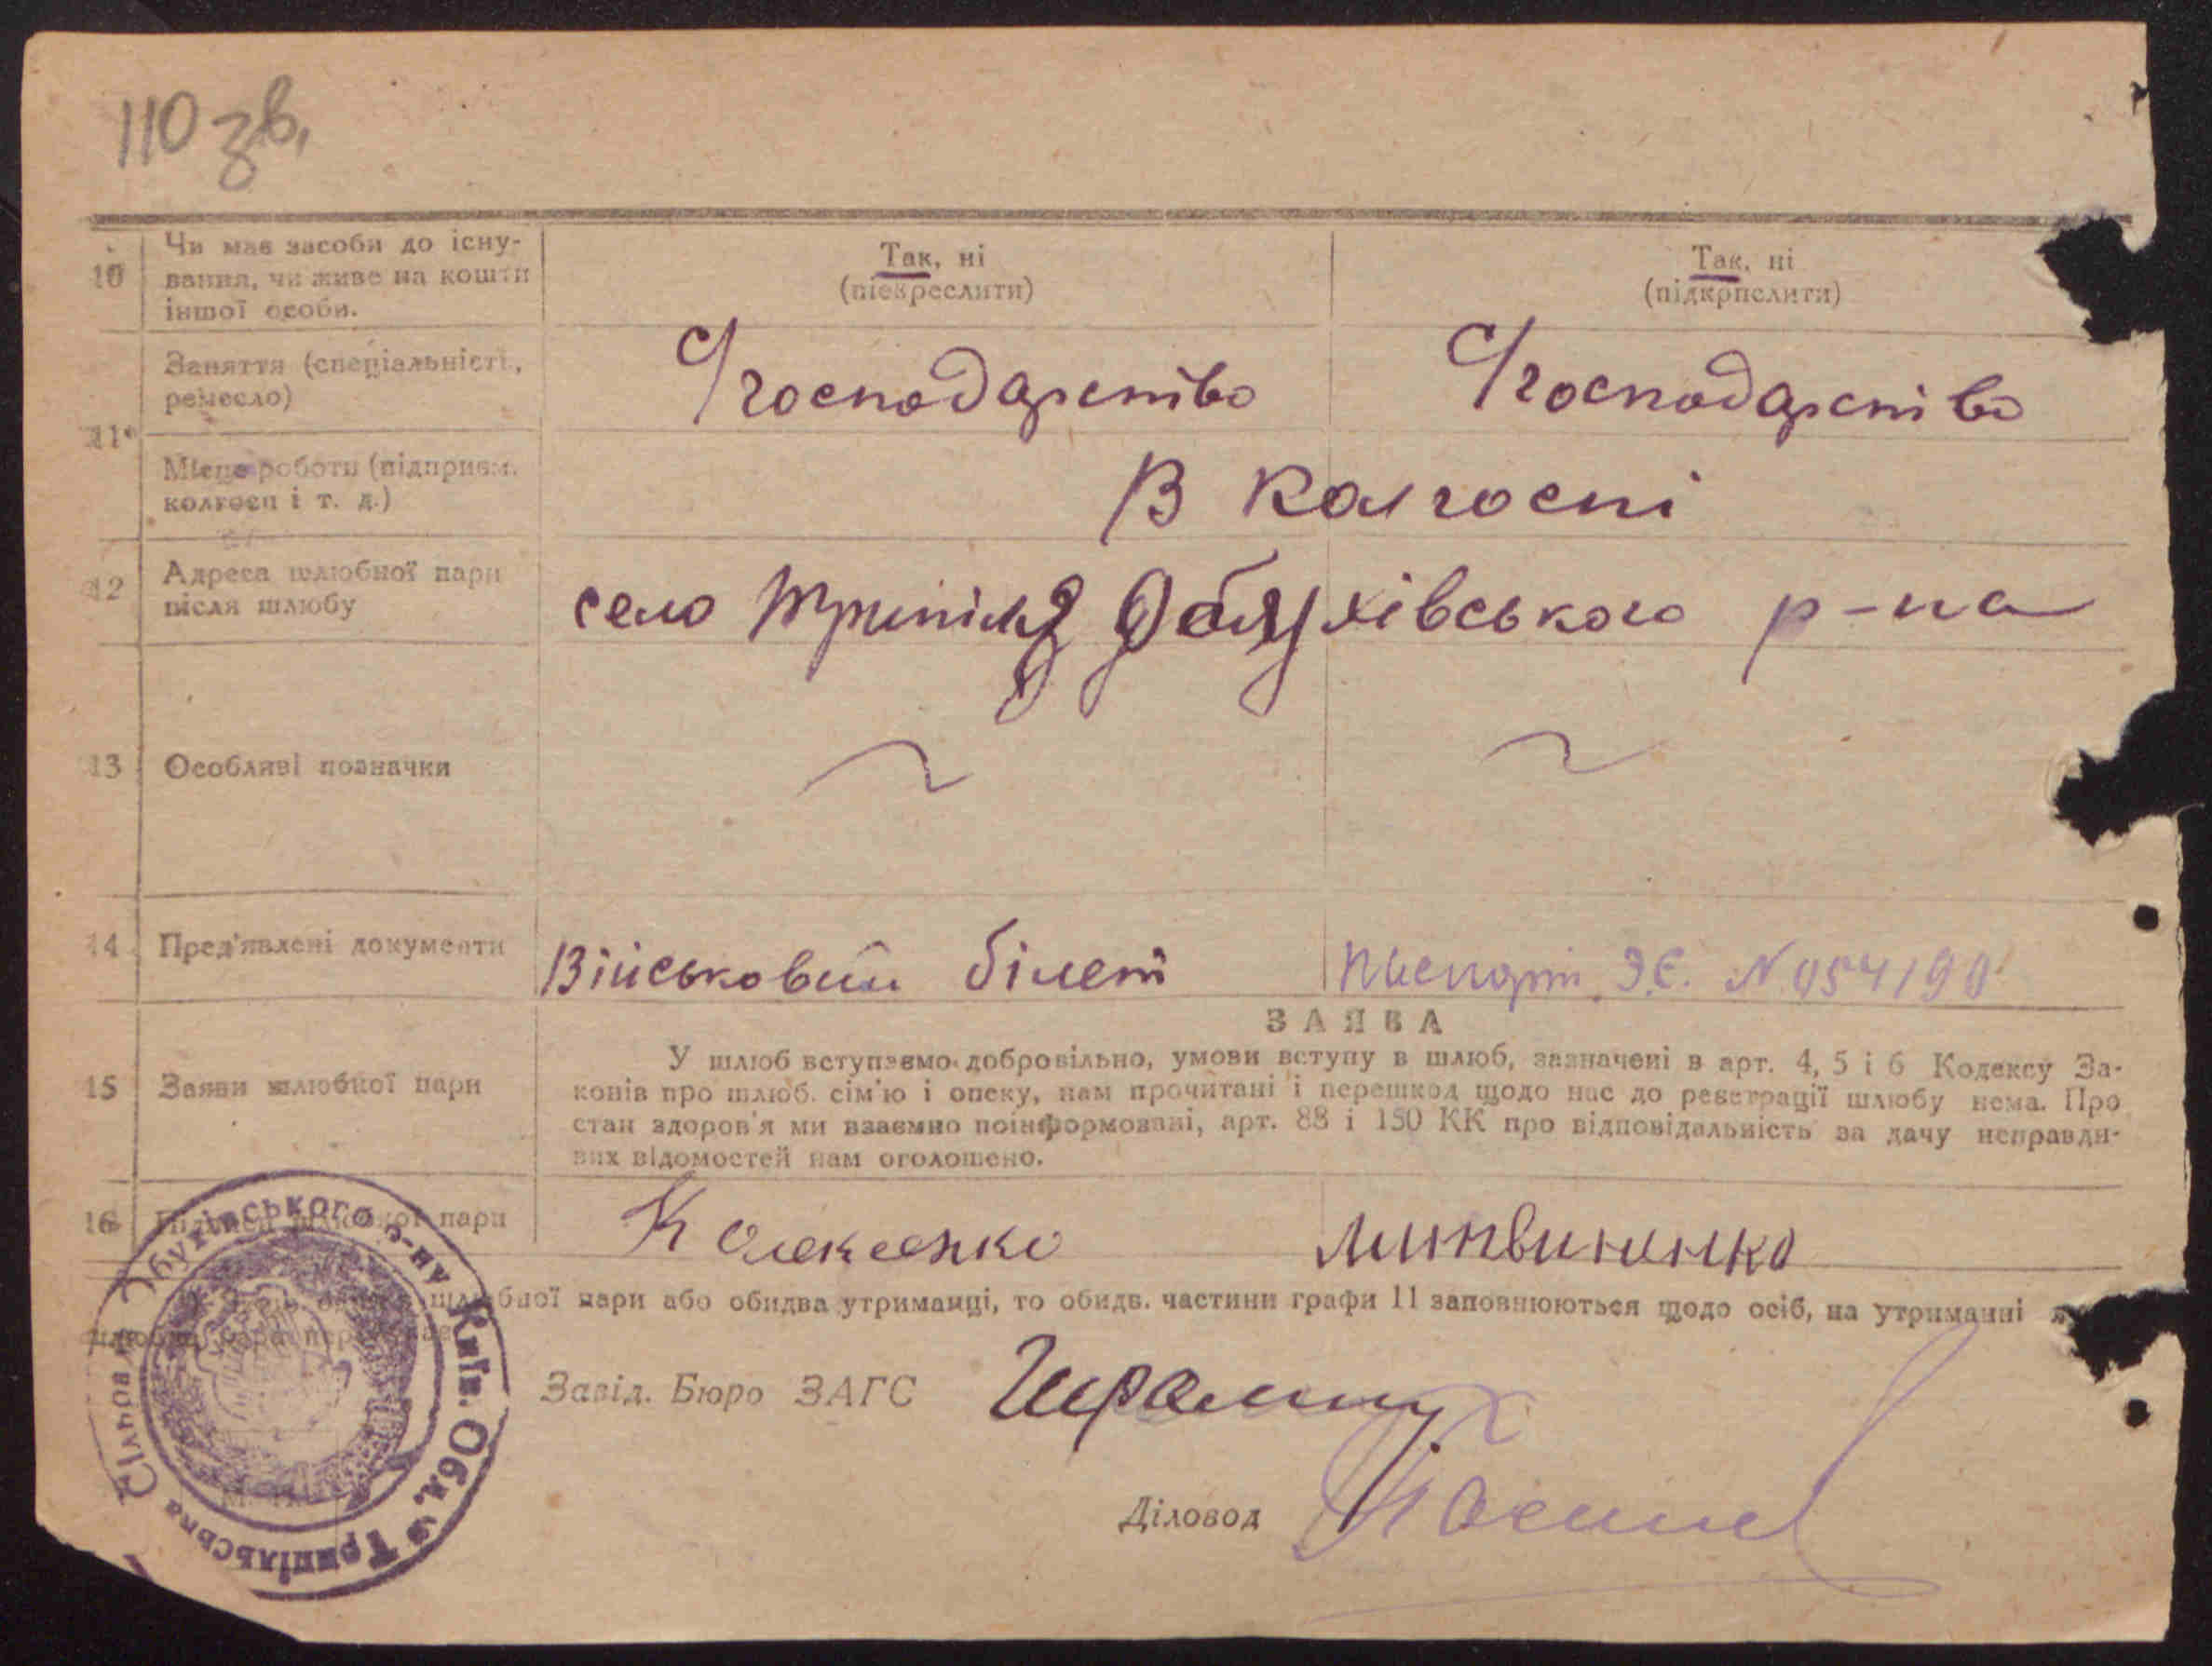 110 зв.
10 Чи має засоби до існу-
вання, чи живе на кошти
іншої особи.
Так, ні
(підкреслити)
Так, ні
(підкрпслити)
11
Заняття (спеціальність,
ремесло)
С/господарство
С/господарство
Місце роботи (підприєм.
колгосп і т. д.)
В колгоспі
12 Адреса шлюбної пари
після шлюбу
село Трипілля Обухівського р-на
13 Особливі позначки
14 Пред'явлені документи
Військовий білет
Паспорт
ЗАЯВА
15 Заяви шлюбної пари
У шлюб вступаємо добровільно, умови вступу в шлюб, зазначені в арт. 4, 5 і 6 Кодексу За-
конів про шлюб. сім'ю і опеку, нам прочитані і перешкод щодо нас до реєстрації шлюбу нема. Про
стан здоров'я ми взаємно поінформовані, арт. 88 і 150 КК про відповідальність за дачу неправди-
вих відомостей нам оголошено.
16 Підписи шлюбної пари
Литвиненко
шлюбної пари або обидва утриманці, то обидв. частини графи 11 заповнюються щодо осіб, на утриманні
Завід. Бюро ЗАГС
Діловод
Трипільська Сільов Обухівського р-ну Київ. Обл.